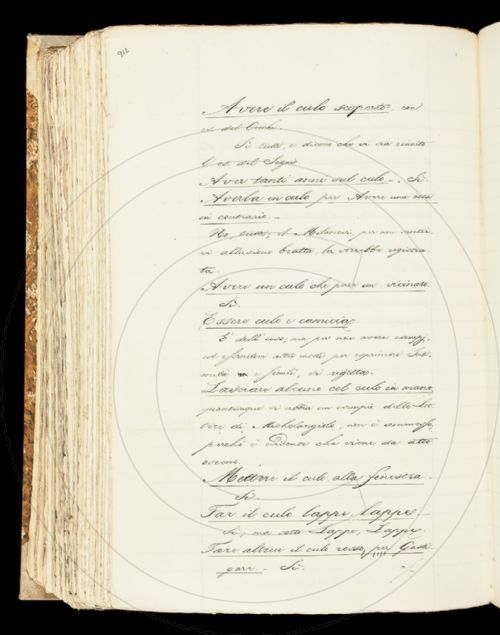 912
Avere il culo scoperto, con
es. del
Si tutti, e dicono che vi sia
l'es. del Segni
Aver tanti anni sul culo. - Si.
Averla in culo per Avere una cosa
in contrario. -
No, tutti, il Milanesi per non
vi allusione brutta, la vorrebbe
ta.
Avere un culo che pare un vicinato.
Si.
Essere culo e camicia.
È dell'uso, ma per non avere esempj,
ed essendovi altri modi per esprimere
e simili, si rigetta.
Lasciare alcuno col culo in mano,
quantunque si abbia un esempio delle Let-
tere di Michelangiolo, non è ammesso,
perchè è evidenza che viene da
errone.
Mettere il culo alla finestra.
Si.
Far il culo lappe lappe.
Si, ma sotto Lappe, Lappe.
Fare altrui il culo rosso, per Gasti-
gare. - Si.